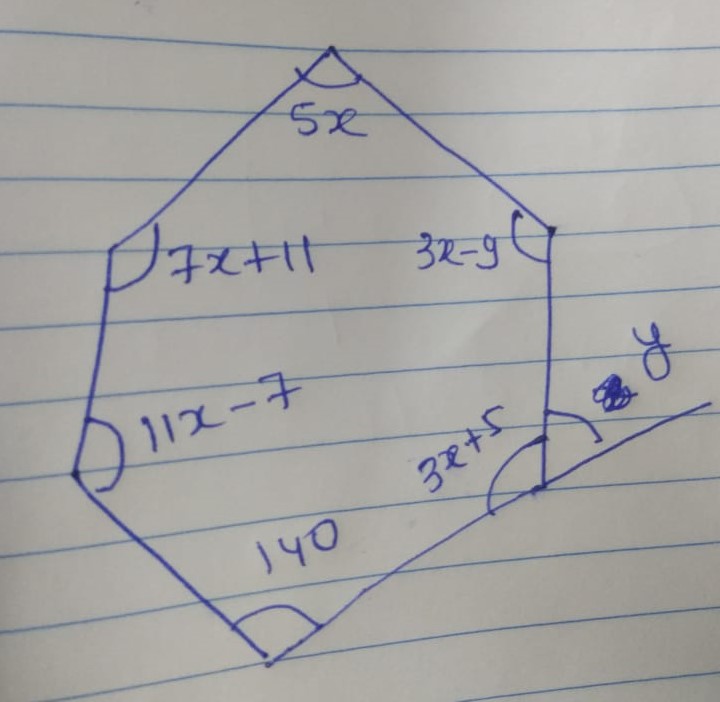 5x
7x+11
3x-9
y
11x-7
3x+5
140